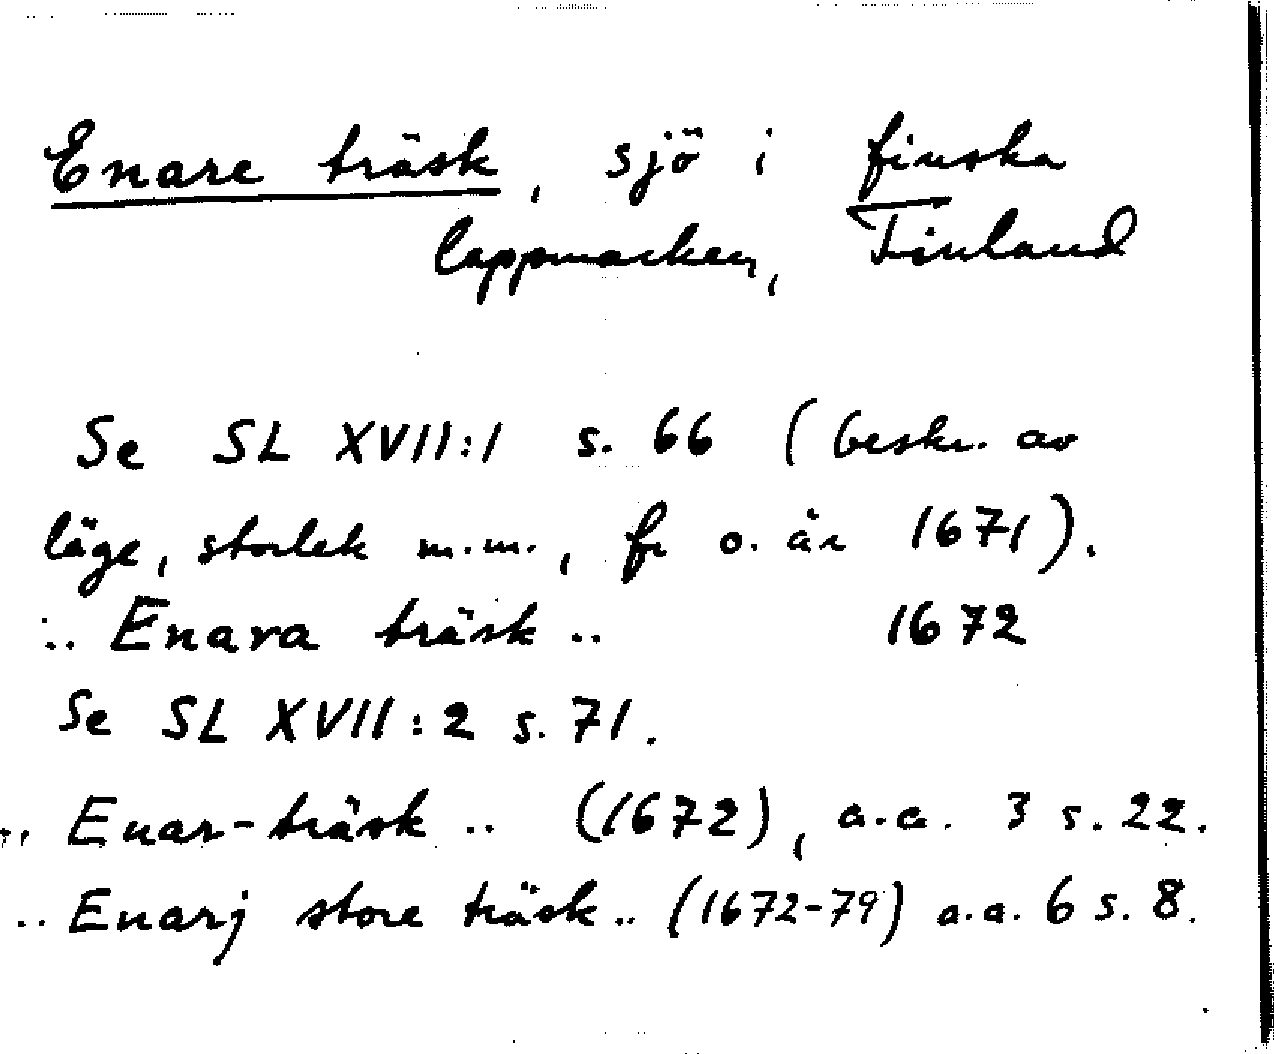 Enare träsk, sjö i finska
lappmarken, Finland
Se SL XVII:1 s. 66 (beskr. av
läge, storlek m.m., fr o. år 1671).
.. Enara träsk .. 1672
Se SL XVII:2 s. 71.
.. Enar-träsk .. (1672), a.a. 3 s. 22.
.. Enarj store träsk .. (1672-79) a.a. 6 s. 8.